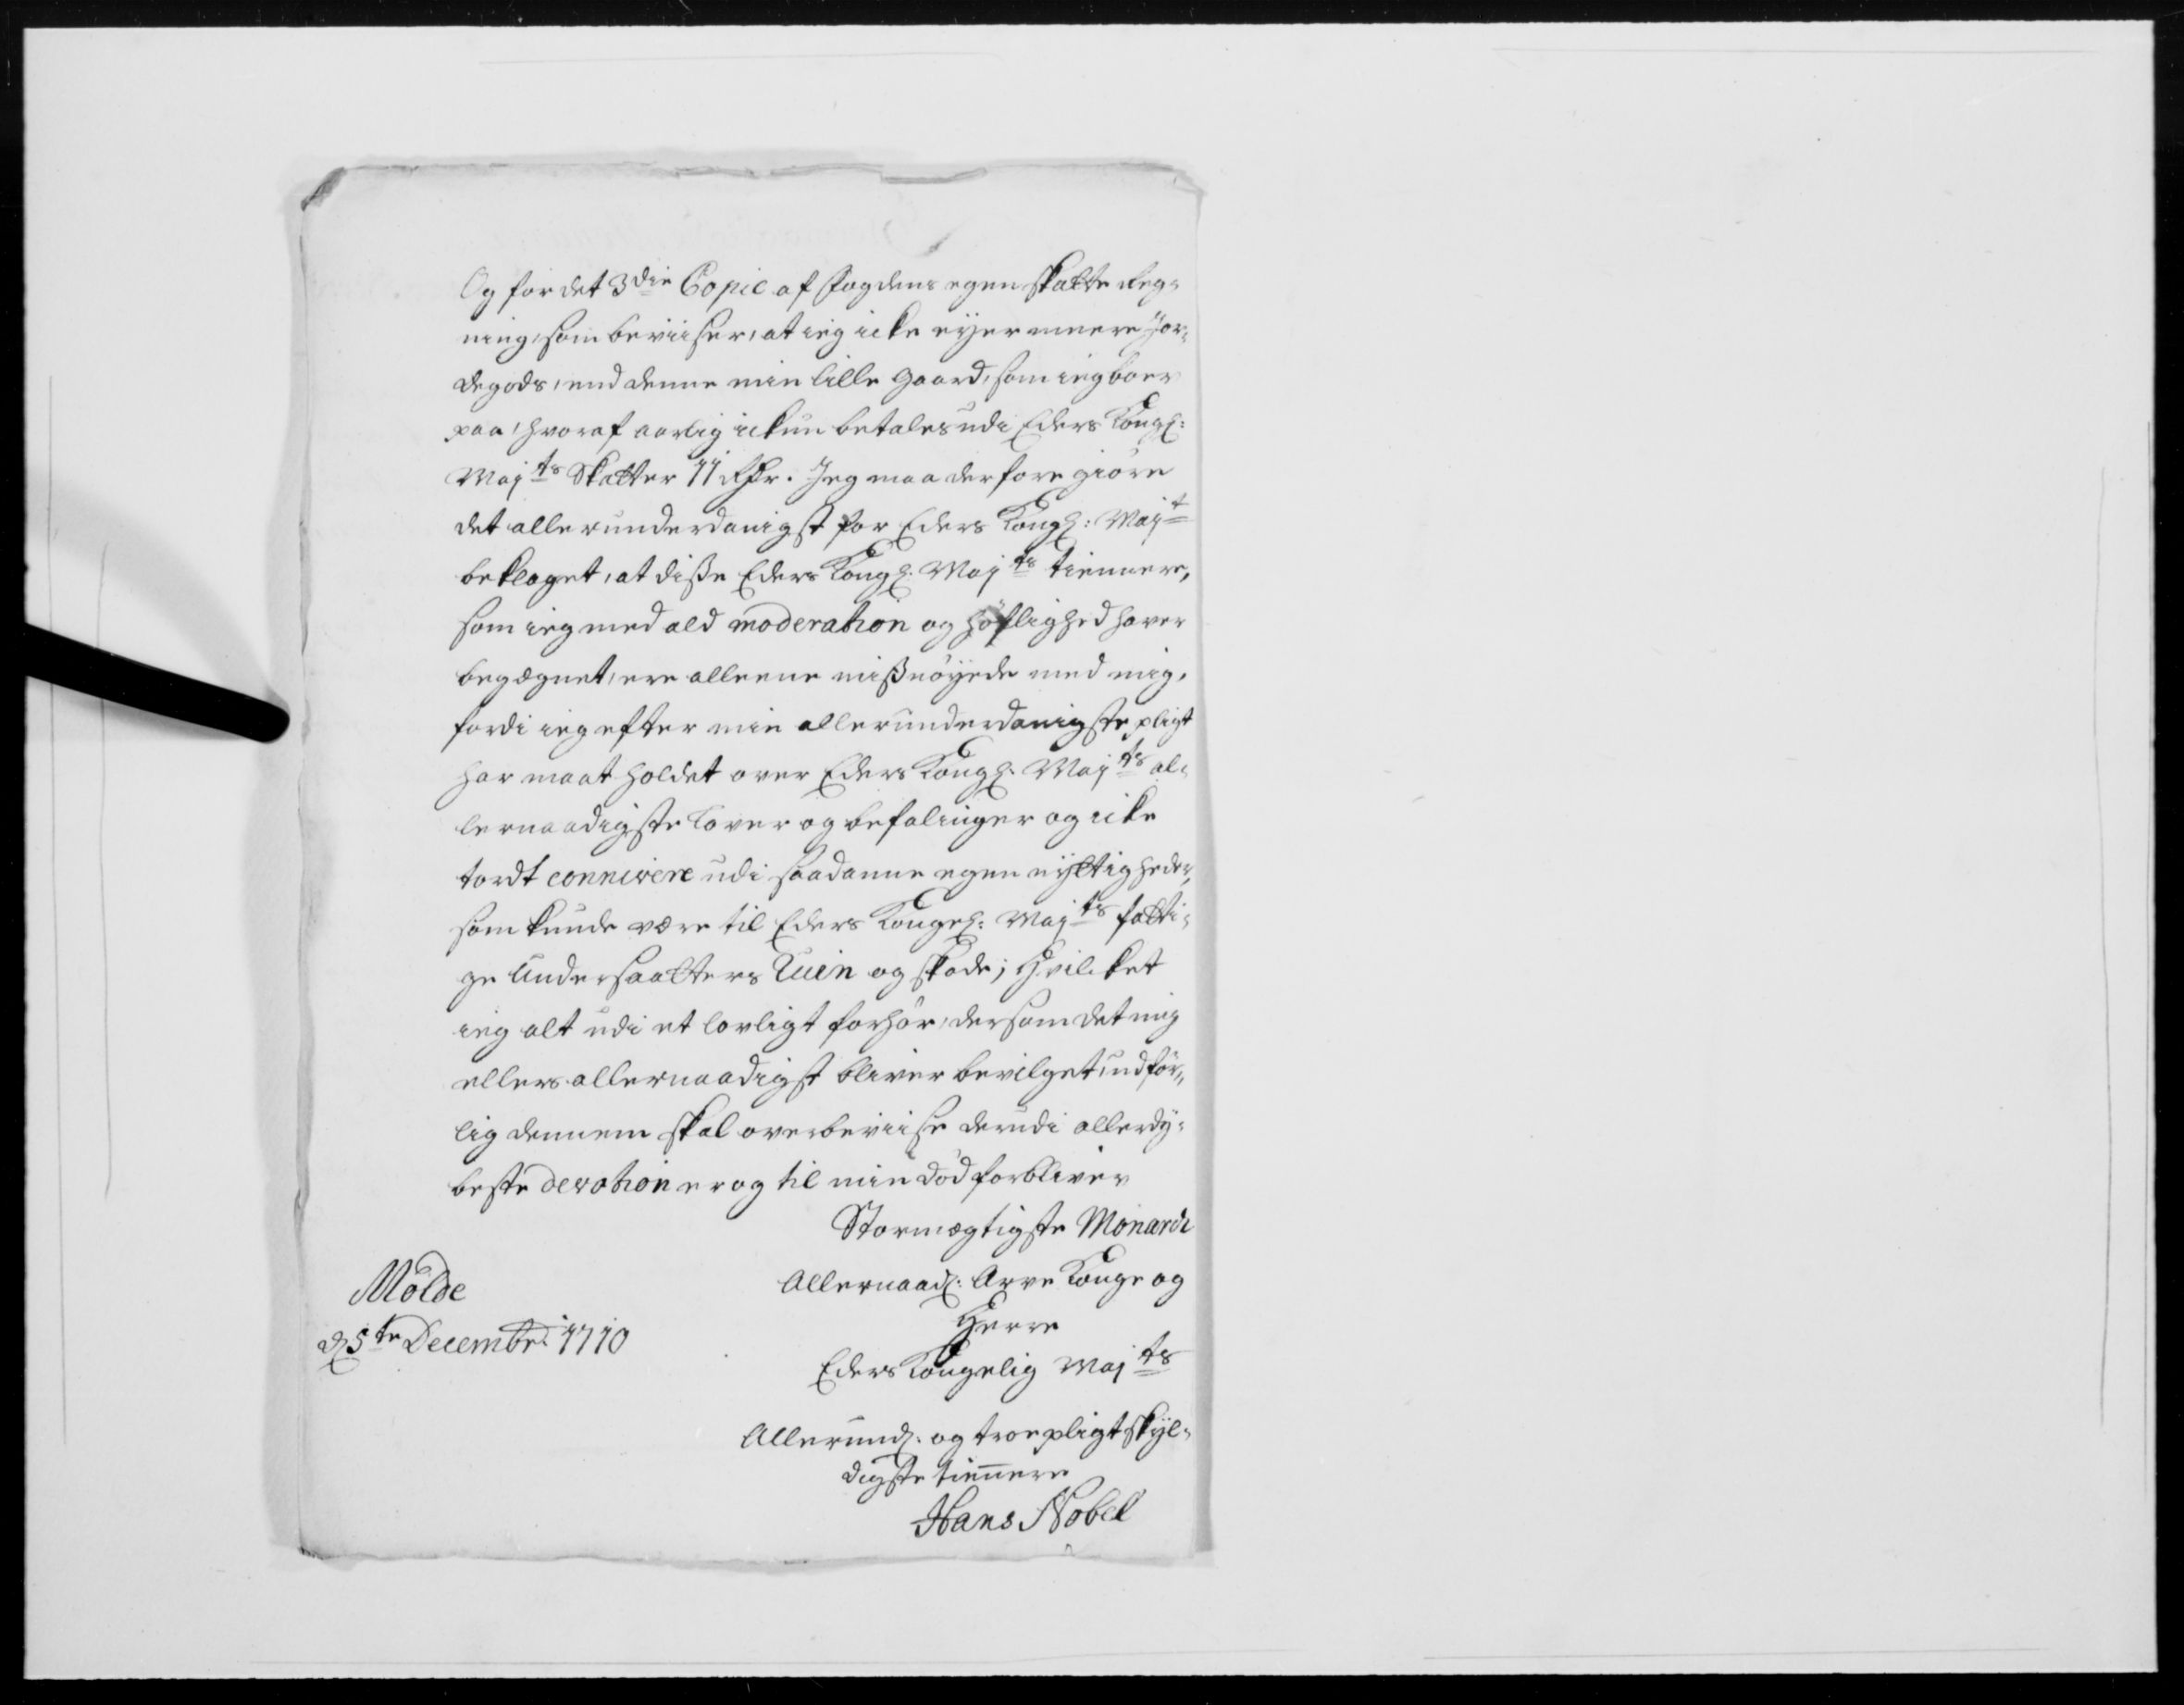 Og for det 3die Copie af Fogdens egen Skatte Reg-
ning, som beviiser, at ieg icke eyer meere Jor-
degods, end denne min lille gaard, som ieg boer
paa, hvoraf aarlig ickun betales udi Eders Kongl:
Majts Skatter 11 rdr. Jeg maa derfore giøre
det allerunderdanigst for Eders Kongl: Majt
beklaget, at diße Eders Kongl. Majts tiennere,
som ieg med ald moderation og höflighed haver
begægnet, ere alleene mißnöyede med mig,
fordi ieg efter min allerunderdanigste pligt
har maat holdet over Eders Kongl. Majts al-
lernaadigste Lover og befalinger og icke
tordt connivere udi saadanne egen nyttigheder,
som kunde være til Eders Kongel: Majts fatti-
ge Undersaatters Ruin og skade; Hvilcket
ieg alt udi et lovligt forhör, dersom det mig
ellers allernaadigst bliver bevilget, udför-
lig dennem skal overbeviise derudi allerdy-
beste devotion er og til min död forbliver
Stormægtigste Monarch
Allernaad: Arve Konge og
Herre
Molde
d 5te Decembr 1710
Eders Kongelig Majts
Allerund: og troe pligtskyl-
digste tiennere
Hans Nobel